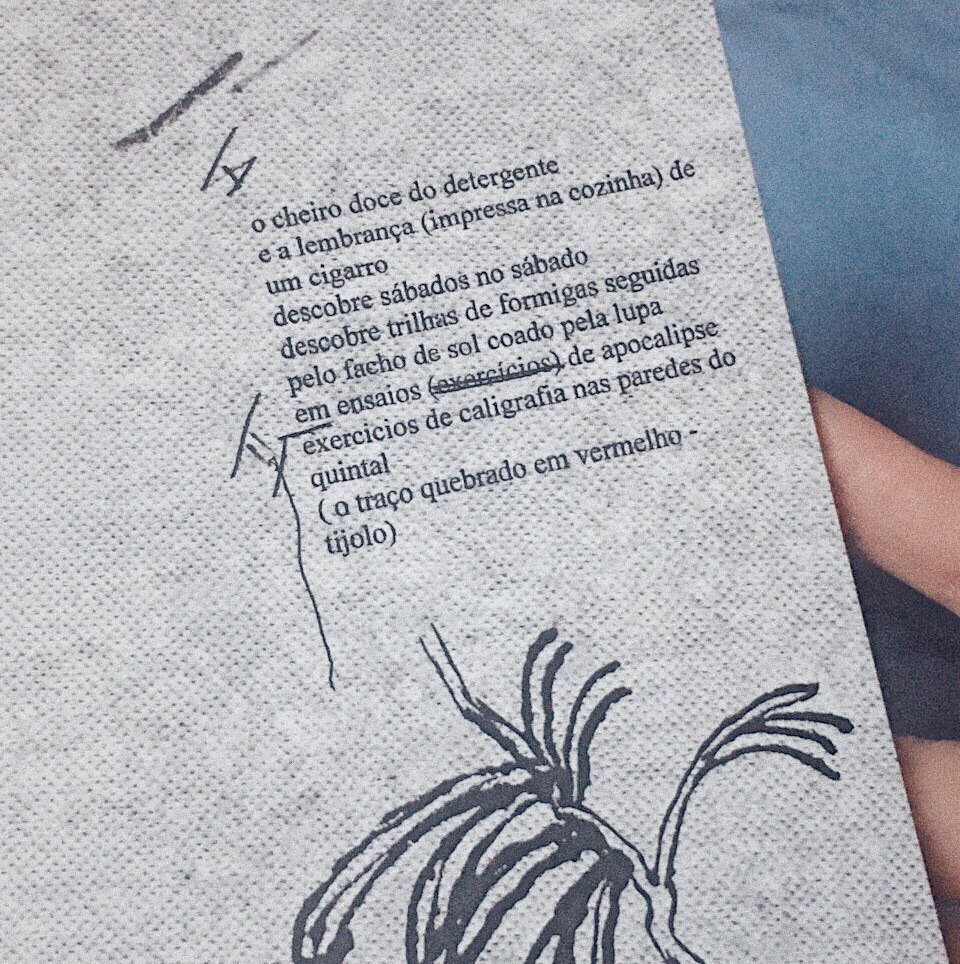 o cheiro doce do detergente
e a lembrança (impressa na cozinha) de
um cigarro
descobre sábados no sábado
descobre trilhas de formigas seguidas
pelo facho de sol coado pela lupa
em ensaios (exercícios) de apocalipse
exercícios de caligrafia nas paredes do
quintal
( o traço quebrado em vermelho -
tijolo)